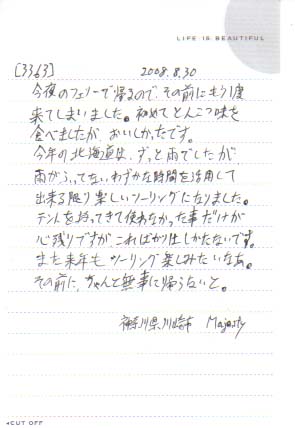 LIFE IS BEAUTIFUL
[3363] 2008.8.30
今夜のフェリーで帰るので、その前にもう1度
来てしまいました。初めてとんこつ味を
食べましたが、おいしかったです。
今年の北海道は、ずっと雨でしたが
雨がふってないわずかな時間を活用して
出来る限り楽しいツーリングになりました。
テントを持ってきて使わなかった事だけが
心残りですが、こればかりはしかたないです。
また来年もツーリング楽しみたいなあ。
その前に、ちゃんと無事に帰らないと。
神奈川県川崎市 Majesty
CUT OFF